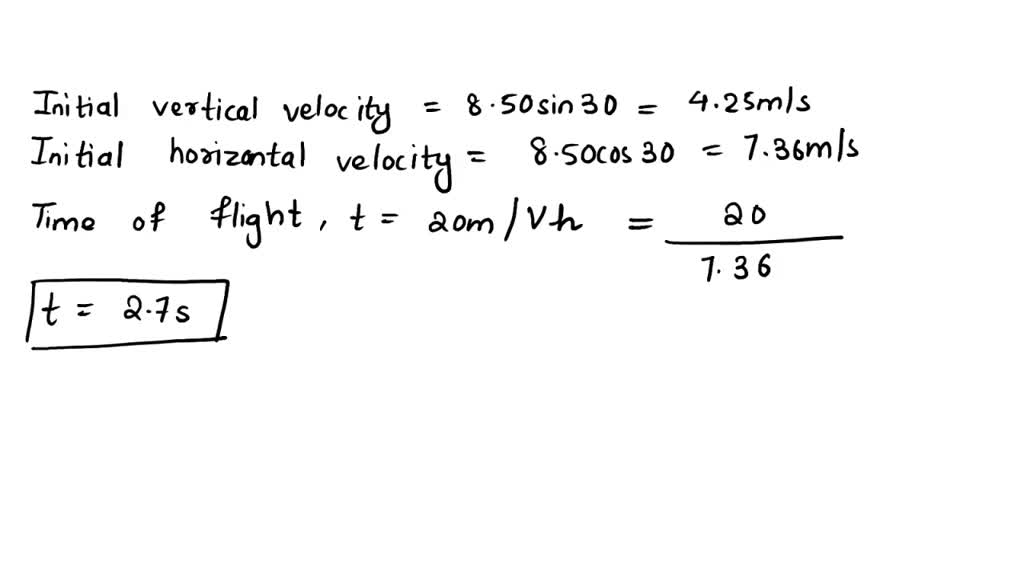 Initial vertical velocity = 8.50sin30 = 4.25m/s
Initial horizontal velocity = 8.50cos30 = 7.36m/s
Time of flight, t = 20m/Vh = 20
7.36
t = 2.7s